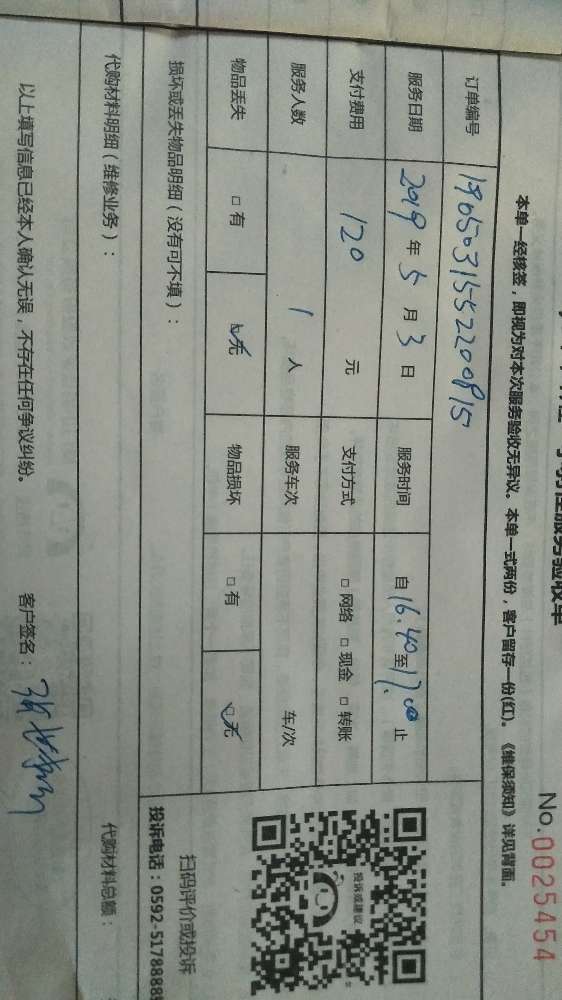 服务验收单
No.0025454
本单一经核签，即视为对本次服务验收无异议。本单一式两份，客户留存一份(红)。《维保须知》详见背面。
订单编号 1905031552200815
服务日期 2019 年 5 月 3 日 服务时间 自 16.40 至 17.00 止
支付费用 120 元 支付方式 □ 网络 □ 现金 □ 转账
服务人数 1 人 服务车次 车/次
物品丢失 □ 有 ☑ 无 物品损坏 □ 有 ☑ 无
投诉或建议
扫码评价或投诉
损坏或丢失物品明细（没有可不填）：
投诉电话：0592-5178888
代购材料明细（维修业务）：
代购材料总额：
以上填写信息已经本人确认无误，不存在任何争议纠纷。 客户签名：